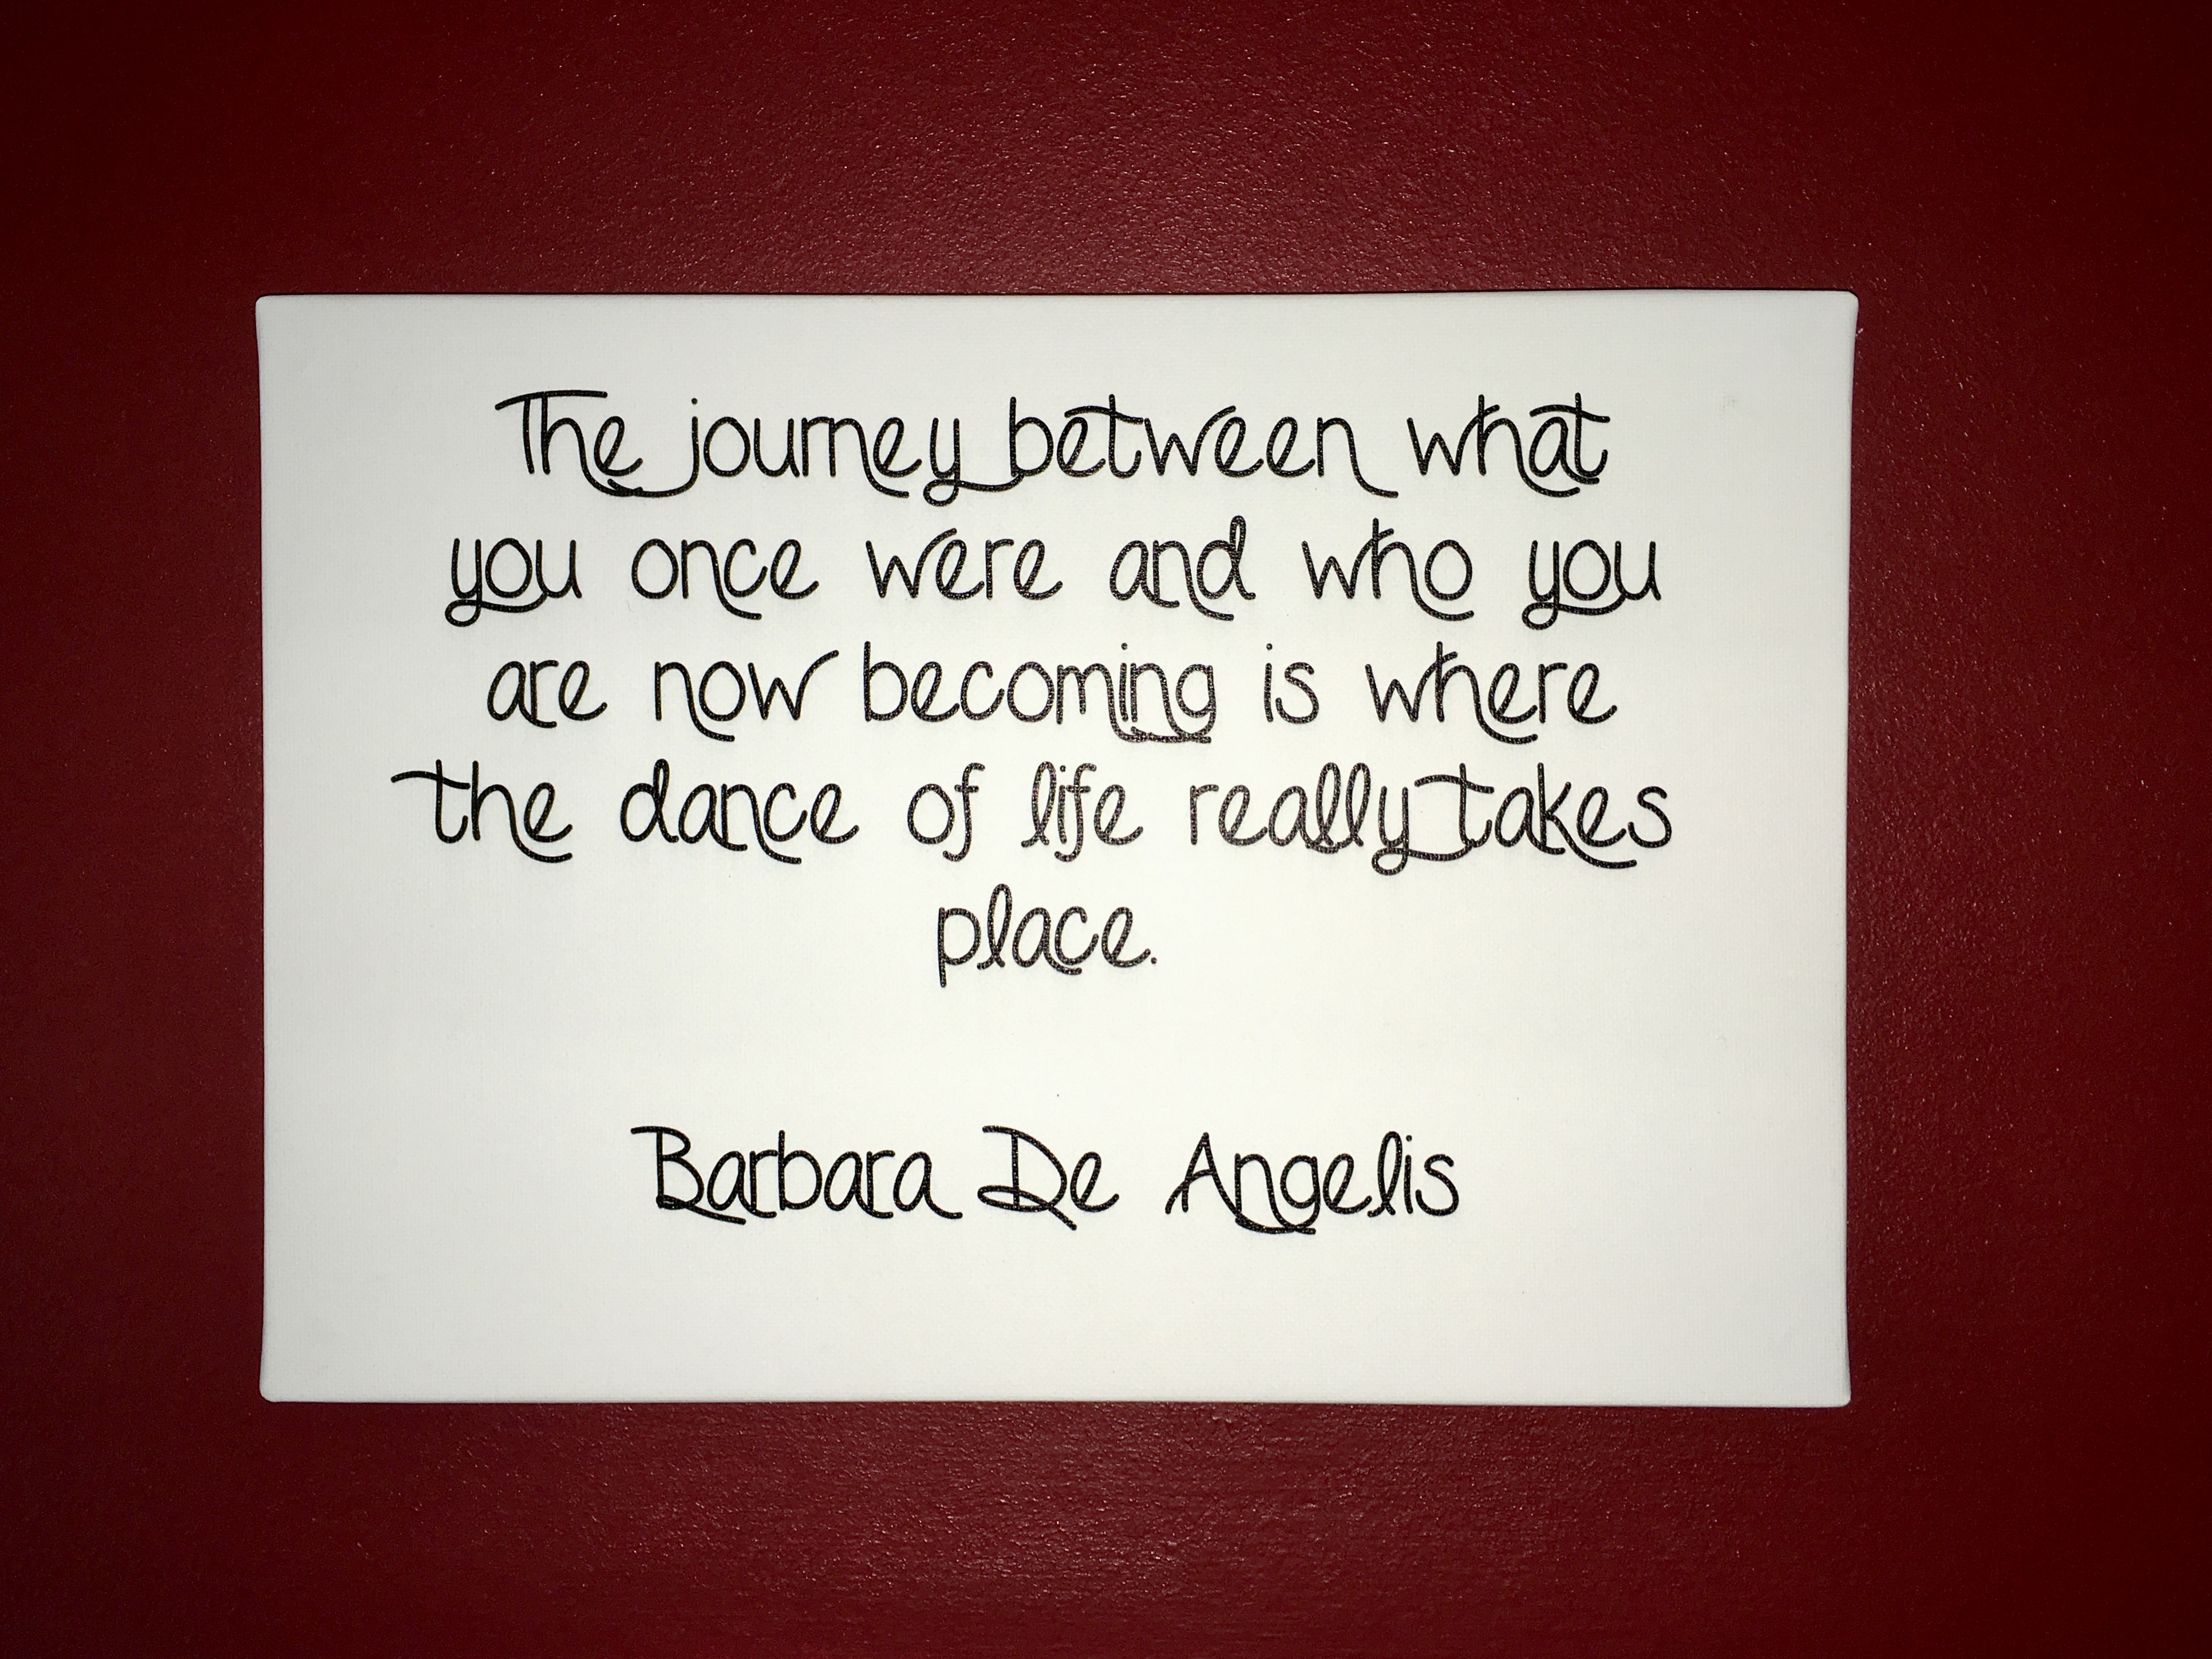 The journey between what
you once were and who you
are now becoming is where
the dance of life really takes
place.
Barbara De Angelis